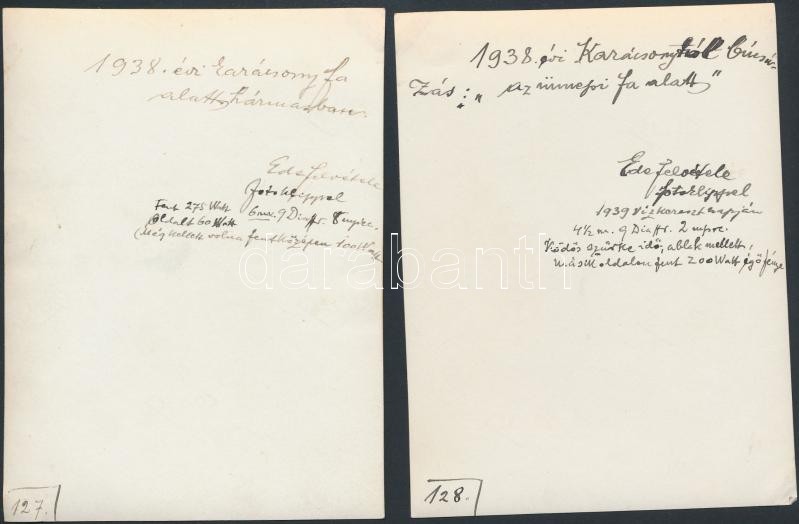 1938. évi karácsonyfa
alatt hármasban.
Ede felvétele
fotoklippel
Fent 275 Watt 6 m. 9 Diaffr. 8 mpre.
oldalt 60 Watt
(Még kellett volna fent középen 100 Watt
127.
1938. évi Karácsonytól búcsú-
zás: "az ünnepi fa alatt"
Ede felvétele
fotoklippel
1939 Vízkereszt napján
4 1/2 m. 9 Diaffr. 2 mpre.
Ködös szürke idő, ablak mellett,
másik oldalon fent 200 Watt égő fénye
128.
darabanth